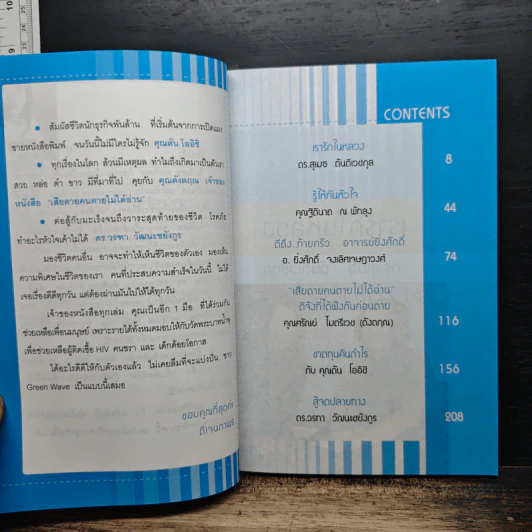 ● สัมผัสชีวิตนักธุรกิจพันล้าน ที่เริ่มต้นจากการเปิดแผง
ขายหนังสือพิมพ์ จนวันนี้ไม่มีใครไม่รู้จัก คุณตัน โออิชิ
● ทุกเรื่องในโลก ล้วนมีเหตุผล ทำไมถึงเกิดมาเป็นตัวเรา
สวย หล่อ ดำ ขาว มีที่มาที่ไป คุยกับ คุณดังตฤณ เจ้าของ
หนังสือ "เสียดายคนตายไม่ได้อ่าน"
● ต่อสู้กับมะเร็งจนถึงวาระสุดท้ายของชีวิต โรคภัย
ทำอะไรหัวใจเค้าไม่ได้ ดร.วรฑา วัฒนะชยังกูร
มองชีวิตคนอื่น อาจจะทำให้เห็นชีวิตของตัวเอง มองเห็น
ความพิเศษในชีวิตของเรา คนที่ประสบความสำเร็จในวันนี้ ไม่ได้
เจอเรื่องดีดีทุกวัน แต่ต้องผ่านมันไปให้ได้ทุกวัน
เจ้าของหนังสือทุกเล่ม คุณเป็นอีก 1 มือ ที่ได้ร่วมกัน
ช่วยเหลือเพื่อนมนุษย์ เพราะรายได้ทั้งหมดมอบให้กับวัดพระบาทน้ำพุ
เพื่อช่วยเหลือผู้ติดเชื้อ HIV คนชรา และ เด็กด้อยโอกาส
ได้อะไรดีดีให้กับตัวเองแล้ว ไม่เคยลืมที่จะแบ่งปัน ชาว
Green Wave เป็นแบบนี้เสมอ
ขอบคุณที่สุดค่ะ
CONTENTS
เรารักในหลวง
ดร.สุเมธ ตันติเวชกุล
8
รู้ให้ทันหัวใจ
คุณฐิตินาถ ณ พัทลุง
44
ดีดึ๋ง..ท้ายครัว อาจารย์ยิ่งศักดิ์
อ. ยิ่งศักดิ์ จงเลิศเจษฎาวงศ์
74
"เสียดายคนตายไม่ได้อ่าน"
ดีจังที่ได้ฟังกันก่อนตาย
คุณศรันย์ ไมตรีเวช (ดังตฤณ)
116
ขาดทุนคืนกำไร
กับ คุณตัน โออิชิ
156
สู้จุดปลายทาง
ดร.วรฑา วัฒนะชยังกูร
208